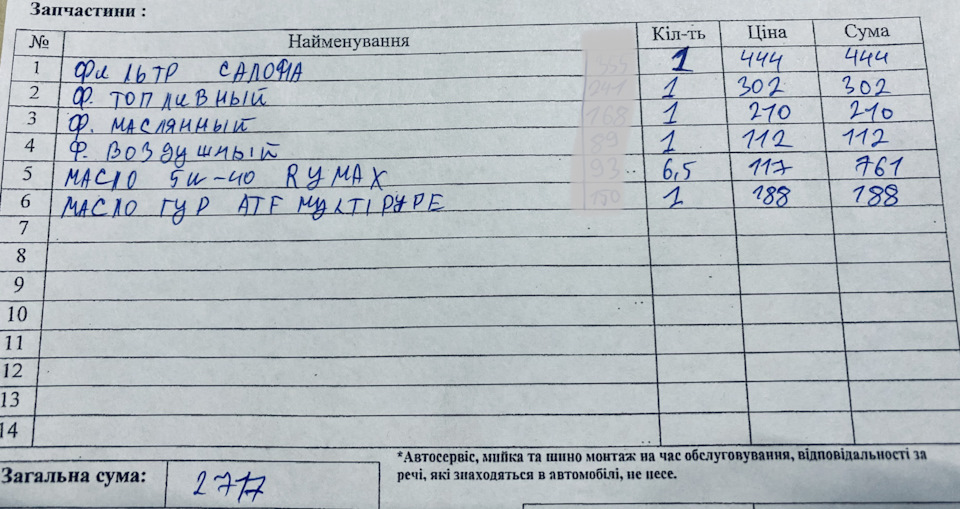 Запчастини :
№ Найменування Кіл-ть Ціна Сума
1 ФИЛЬТР САЛОНА 1 444 444
2 Ф. ТОПЛИВНЫЙ 241 1 302 302
3 Ф. МАСЛЯННЫЙ 168 1 210 210
4 Ф. ВОЗДУШНЫЙ 89 1 112 112
5 МАСЛО 5W-40 RYMAX 93 6,5 117 761
6 МАСЛО ГУР ATF МУЛЬТІРУРЕ 150 1 188 188
7
8
9
10
11
12
13
14
Загальна сума: 2717
*Автосервіс, мийка та шино монтаж на час обслуговування, відповідальності за
речі, які знаходяться в автомобілі, не несе.